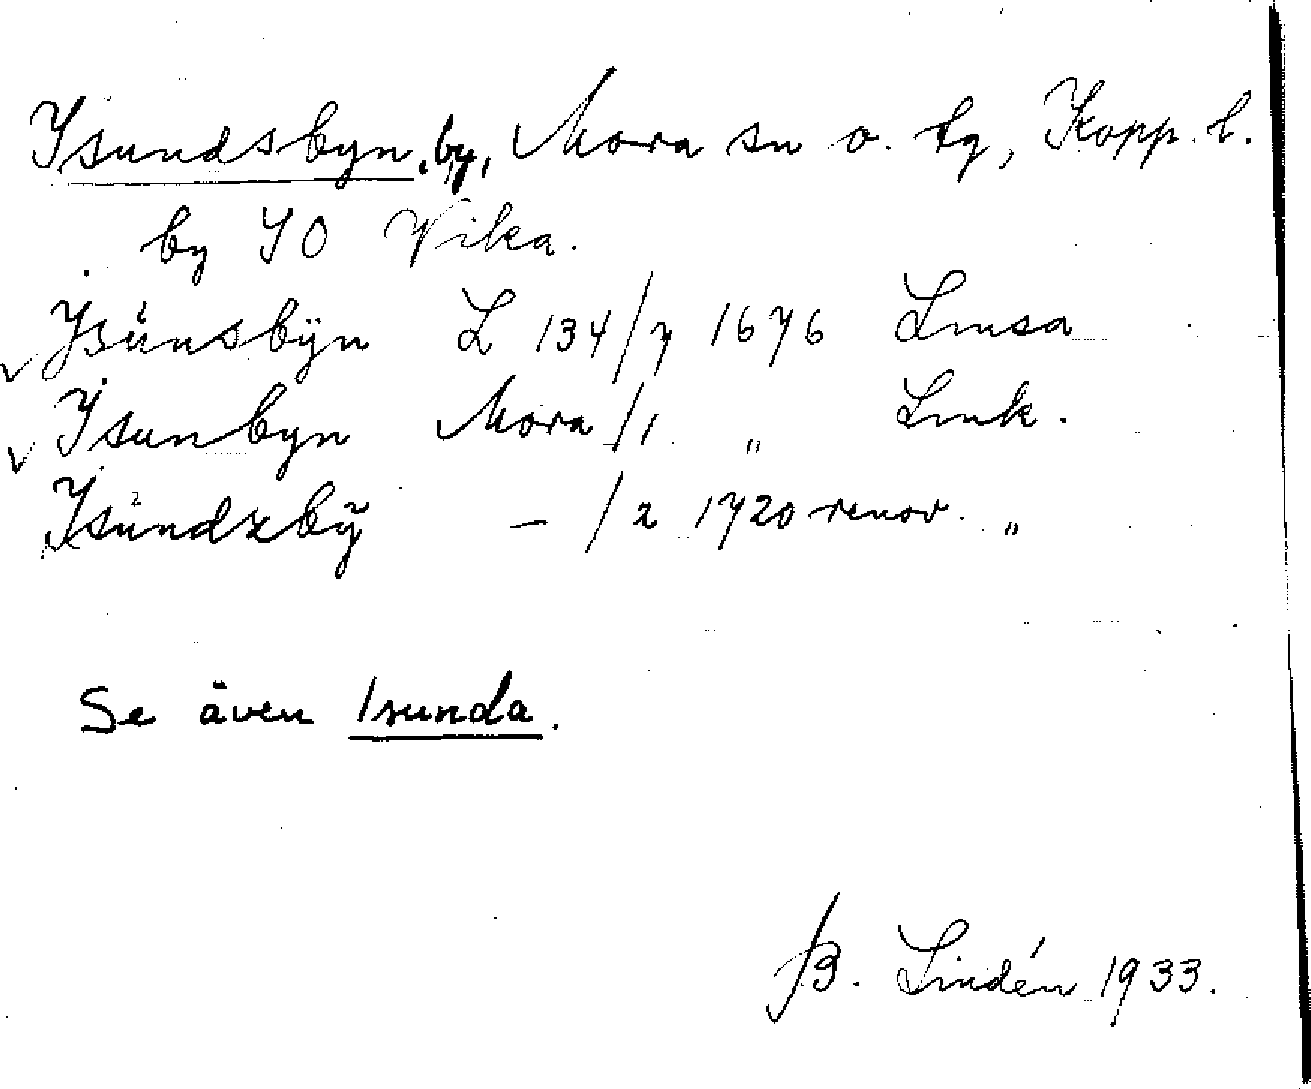 Isundsbyn, by, Mora sn o. tg, Kopp. l.
by SO Vika.
Isůnsbÿn L 134/7 1676 Lmsa
Isunbyn Mora /1 " Lmk.
Isůndzbÿ — /2 1720 renov. "
Se även Isunda.
B. Lindén 1933.